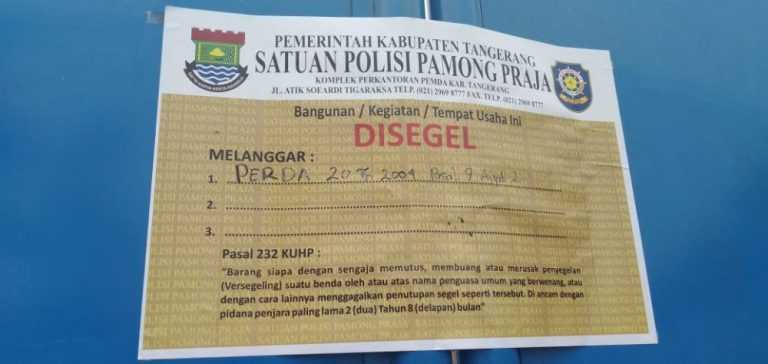 PEMERINTAH KABUPATEN TANGERANG
SATUAN POLISI PAMONG PRAJA
KOMPLEK PERKANTORAN PEMDA KAB. TANGERANG
JL. ATIK SOEARDI TIGARAKSA TELP. (021) 2969 8777 FAX. TELP. (021) 2969 8777
Bangunan / Kegiatan / Tempat Usaha Ini
DISEGEL
MELANGGAR :
1. PERDA 20 2004 9
2.
3.
Pasal 232 KUHP :
"Barang siapa dengan sengaja memutus, membuang atau merusak penyegelan
(Versegeling) suatu benda oleh atau atas nama penguasa umum yang berwenang, atau
dengan cara lainnya menggagalkan penutupan segel seperti tersebut. Di ancam dengan
pidana penjara paling lama 2 (dua) Tahun 8 (delapan) bulan"